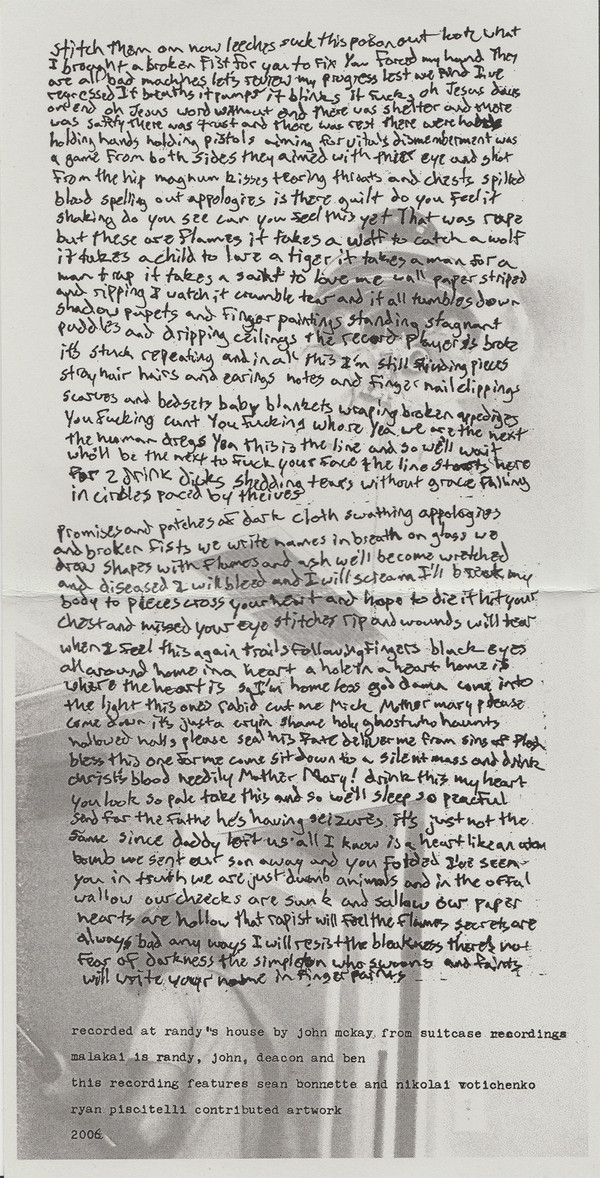 stitch them on now leeches suck this poison out look what
I brought a broken fist for you to fix You forced my hand They
are all bad machines lets review my progress lest we find I've
regressed If it breaths it pumps it blinks it fucks oh Jesus does
end oh Jesus word without end There was shelter and there
was safty There was trust and there was rest there were hands
holding hands holding pistols aiming for vitals dismemberment was
a game From both sides they aimed with their eye and shot
From the hip magnum kisses tearing throats and chests spilled
blood spelling out appologies is there guilt do you feel it
shaking do you see can you feel this yet That was rape
but these are flames it takes a wolf to catch a wolf
it takes a child to lure a tiger it takes a man for a
man trap it takes a saint to love me wall paper striped
and ripping I watch it crumble tear and it all tumbles down
shadow pupets and finger paintings standing stagnant
puddles and dripping ceilings the record player is broke
it's stuck repeating and in all this I'm still finding pieces
stray hair hairs and earings notes and finger nail clippings
scarves and bedsets baby blankets wraping broken appediges
You fucking cunt You fucking whore Yea we are the next
the human dregs Yea this is the line and so we'll wait
who'll be the next to fuck your face the line starts here
For 2 drink dicks shedding tears without grace falling
in circles paced by theives
promises and patches of dark cloth swathing appologies
and broken fists we write names in breath on glass we
draw shapes with flames and ash we'll become wretched
and diseased I will bleed and I will scream I'll break my
body to pieces cross your heart and hope to die it hit your
chest and missed your eye stitches rip and wounds will tear
when I feel this again trails following fingers black eyes
all around home in a heart a hole in a heart home is
where the heart is so I'm homeless god damn come into
the light this ones rabid cut me Mick Mother mary please
come down it's just a cryin shame holy ghost who haunts
hallowed halls please seal his fate deliver me from sins of flesh
bless this one for me come sit down to a silent mass and drink
christ's blood needily Mother Mary! drink this my heart
you look so pale take this and so we'll sleep so peacful
send for the father he's having seizures it's just not the
same since daddy left us all I know is a heart like an atom
bomb we sent our son away and you folded I've seen
you in truth we are just dumb animals and in the offal
wallow our cheeks are sunk and sallow our paper
hearts are hollow that rapist will feel the flames secrets are
always bad any ways I will resist the bleakness there's not
fear of darkness the simpleton who swoons and faints
will write your name in finger paints
recorded at randy's house by john mckay from suitcase recordings
malakai is randy, john, deacon and ben
this recording features sean bonnette and nikolai votichenko
ryan piscitelli contributed artwork
2006